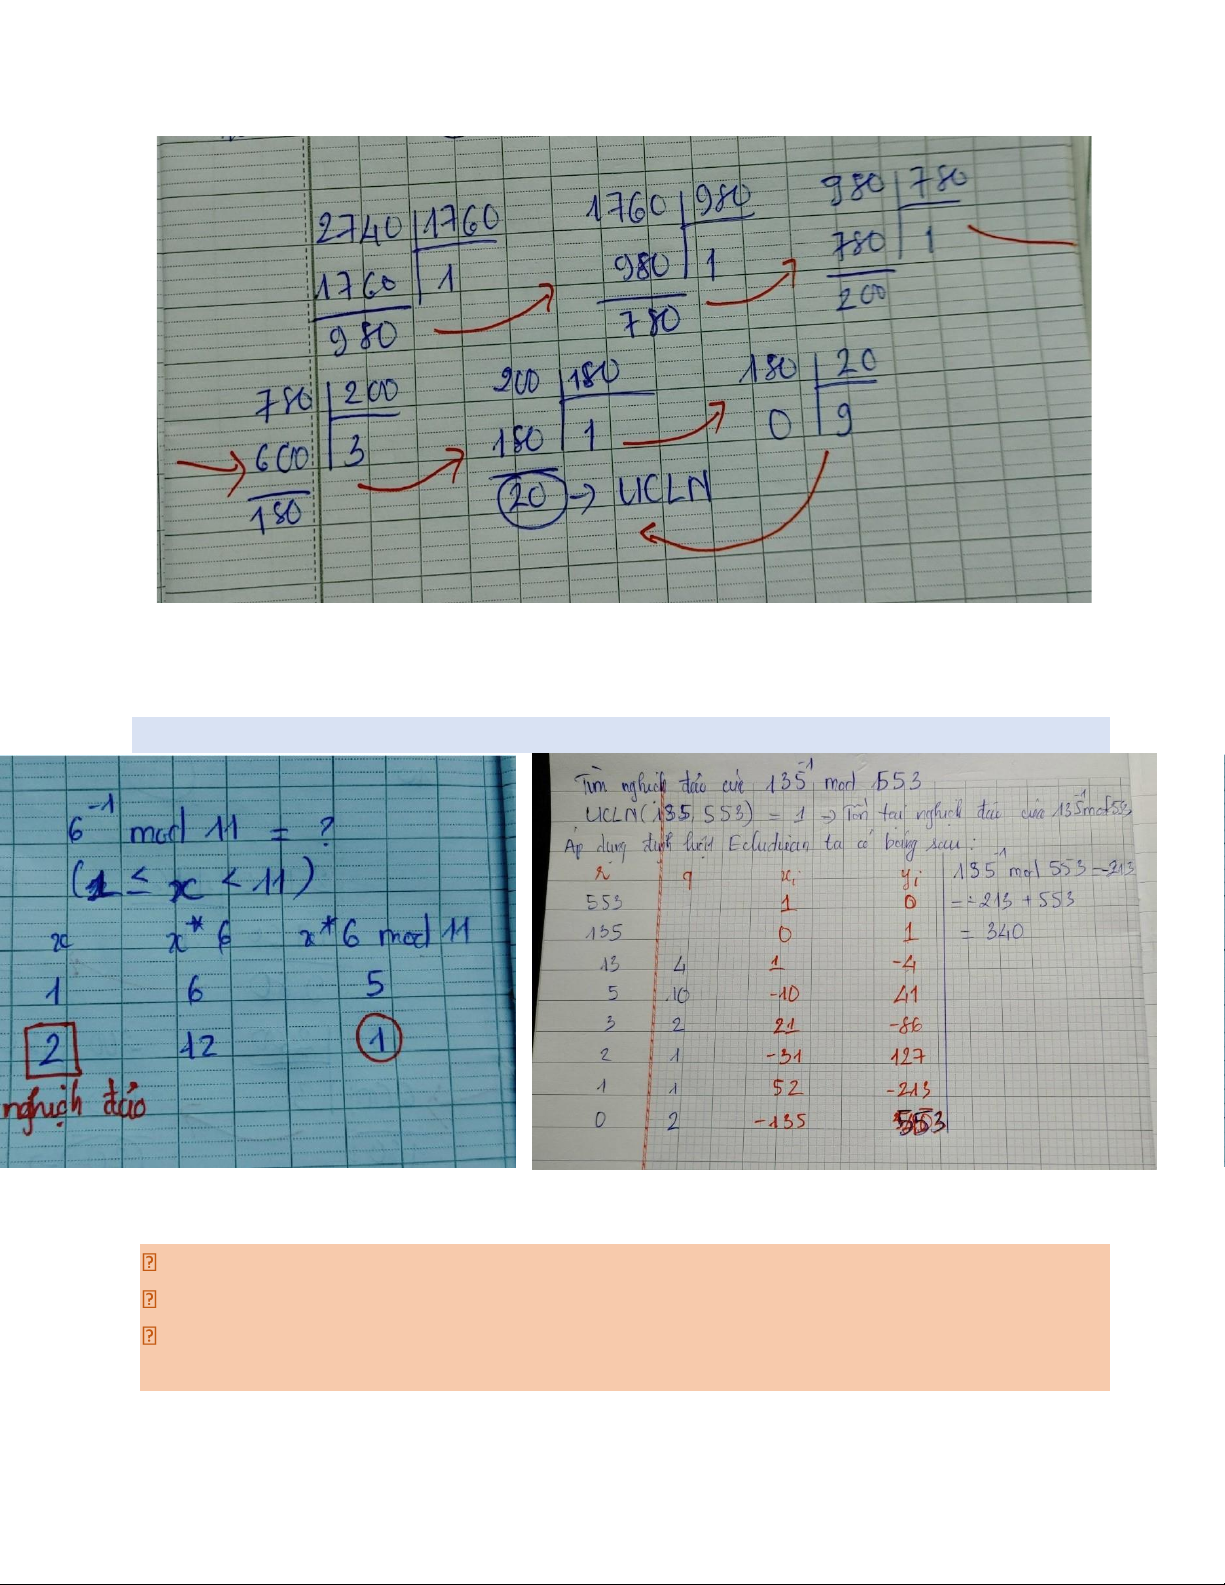 2740 1760 1760 980 980 780
1760 1 980 1 780 1
980 780 200
780 200 200 180 180 20
600 3 180 1 0 9
180 20 → UCLN
6⁻¹ mod 11 = ?
(1 ≤ x < 11)
x x*6 x*6 mod 11
1 6 5
2 12 1
nghịch đảo
Tìm nghịch đảo của 135⁻¹ mod 553
UCLN(135, 553) = 1 → Tồn tại nghịch đảo của 135⁻¹ mod 553
Áp dụng định luật Ecluduian ta có bảng sau:
r q xᵢ yᵢ
553 1 0
135 0 1
13 4 1 -4
5 10 -10 41
3 2 21 -86
2 1 -31 127
1 1 52 -213
0 2 -135 553
135⁻¹ mod 553 = -213
= -213 + 553
= 340